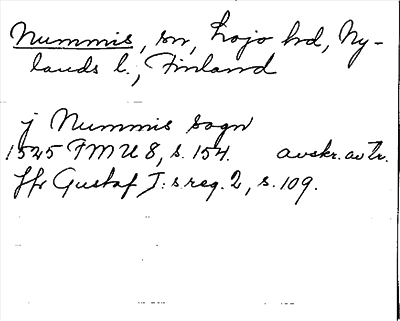 Nummis, sn, Lojo hd, Ny-
lands l., Finland
j Nummis sogn
1525 FMU 8, s. 154. avskr. av tr.
Jfr Gustaf I:s reg. 2, s. 109.